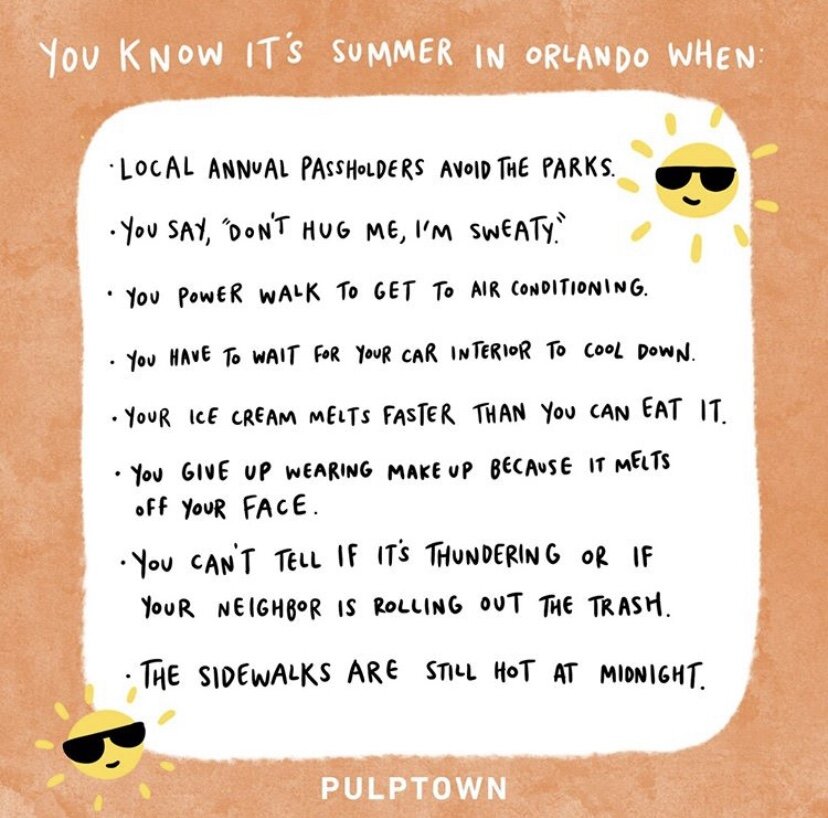 YOU KNOW IT'S SUMMER IN ORLANDO WHEN:
· LOCAL ANNUAL PASSHOLDERS AVOID THE PARKS.
· YOU SAY, "DON'T HUG ME, I'M SWEATY."
· YOU POWER WALK TO GET TO AIR CONDITIONING.
· YOU HAVE TO WAIT FOR YOUR CAR INTERIOR TO COOL DOWN.
· YOUR ICE CREAM MELTS FASTER THAN YOU CAN EAT IT.
· YOU GIVE UP WEARING MAKEUP BECAUSE IT MELTS
OFF YOUR FACE.
· YOU CAN'T TELL IF IT'S THUNDERING OR IF
YOUR NEIGHBOR IS ROLLING OUT THE TRASH.
· THE SIDEWALKS ARE STILL HOT AT MIDNIGHT.
PULPTOWN